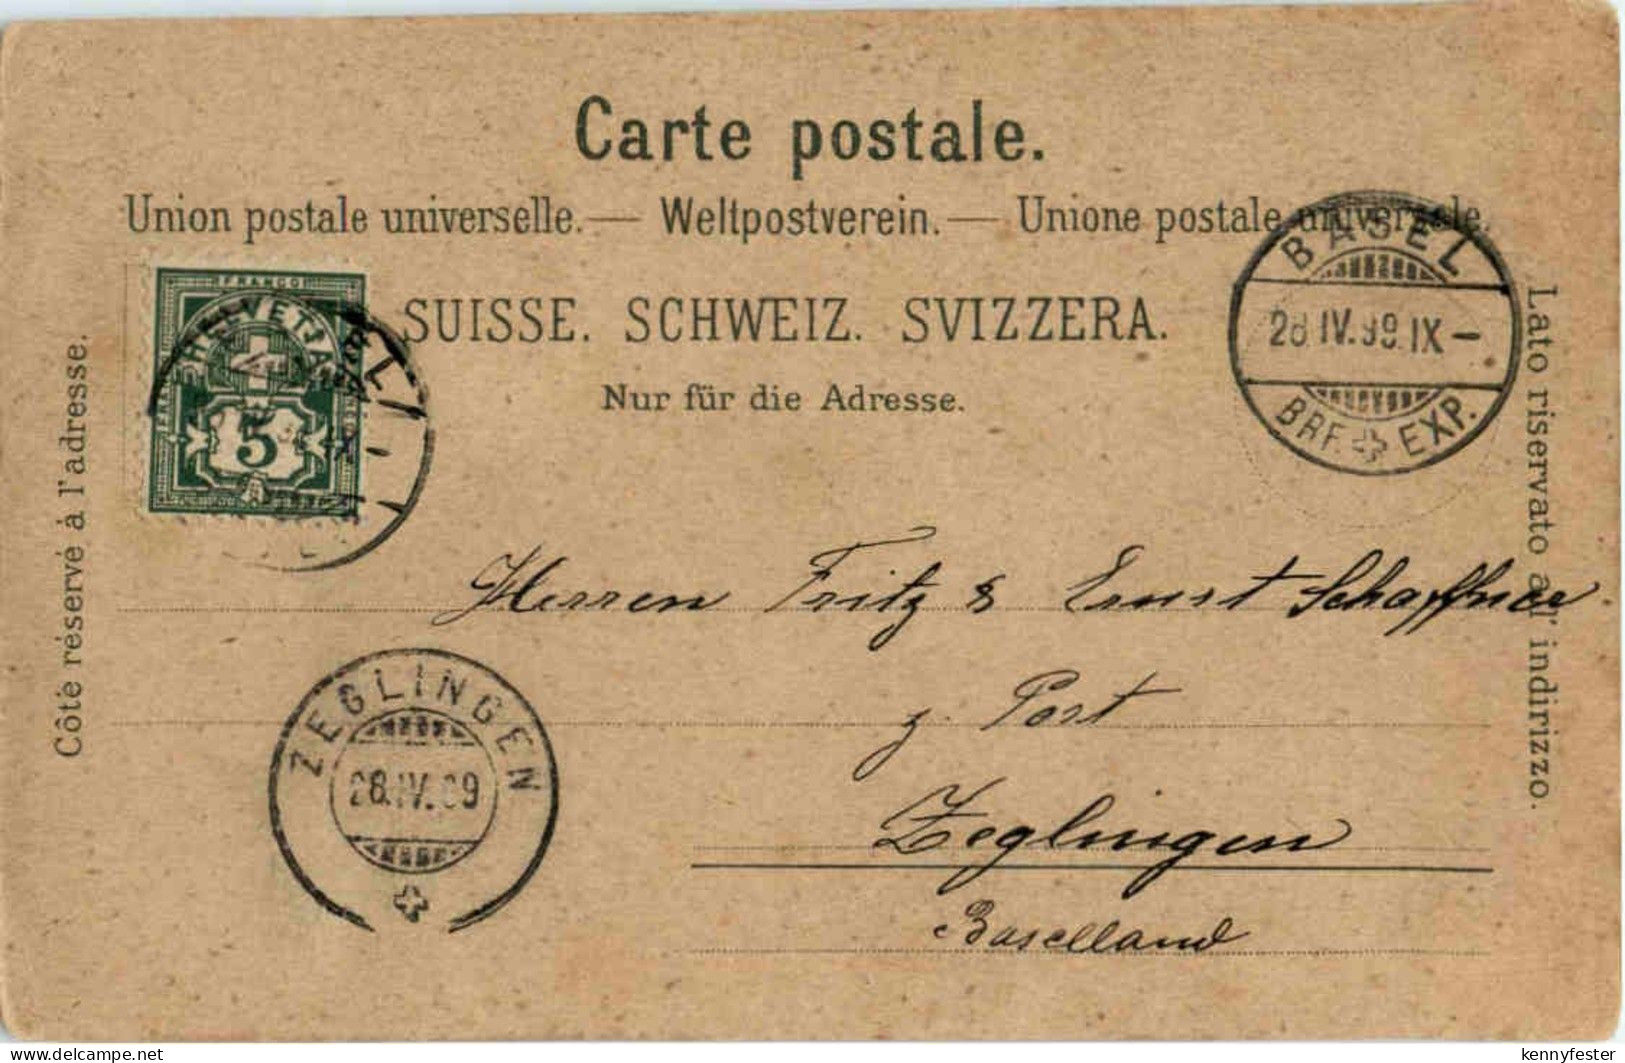 Carte postale.
Union postale universelle. — Weltpostverein. — Unione postale universale.
SUISSE. SCHWEIZ. SVIZZERA.
Nur für die Adresse.
Côté réservé à l'adresse.
Lato riservato all' indirizzo.
FRANCO
HELVETIA
5
BASEL
28.IV.99.IX –
BRF. EXP.
Herren Fritz & Ernst Schaffner
z. Post
Zeglingen
Baselland
ZEGLINGEN
28.IV.99
kennyfester